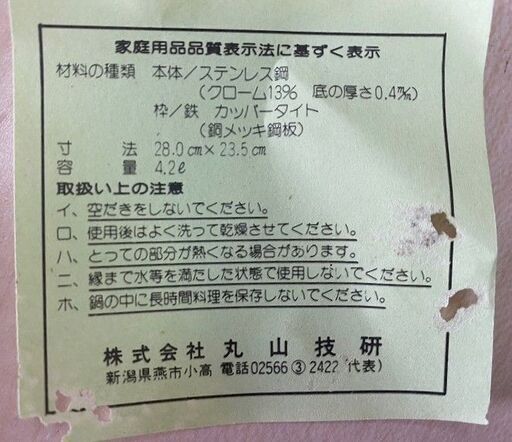 家庭用品品質表示法に基ずく表示
材料の種類 本体/ステンレス鋼
(クローム13% 底の厚さ0.4㎜)
枠/鉄 カッパータイト
(銅メッキ鋼板)
寸法 28.0㎝×23.5㎝
容量 4.2ℓ
取扱い上の注意
イ、空だきをしないでください。
ロ、使用後はよく洗って乾燥させてください。
ハ、とっての部分が熱くなる場合があります。
ニ、縁まで水等を満たした状態で使用しないでください。
ホ、鍋の中に長時間料理を保存しないでください。
株式会社 丸山技研
新潟県燕市小高 電話02566③2422 代表)